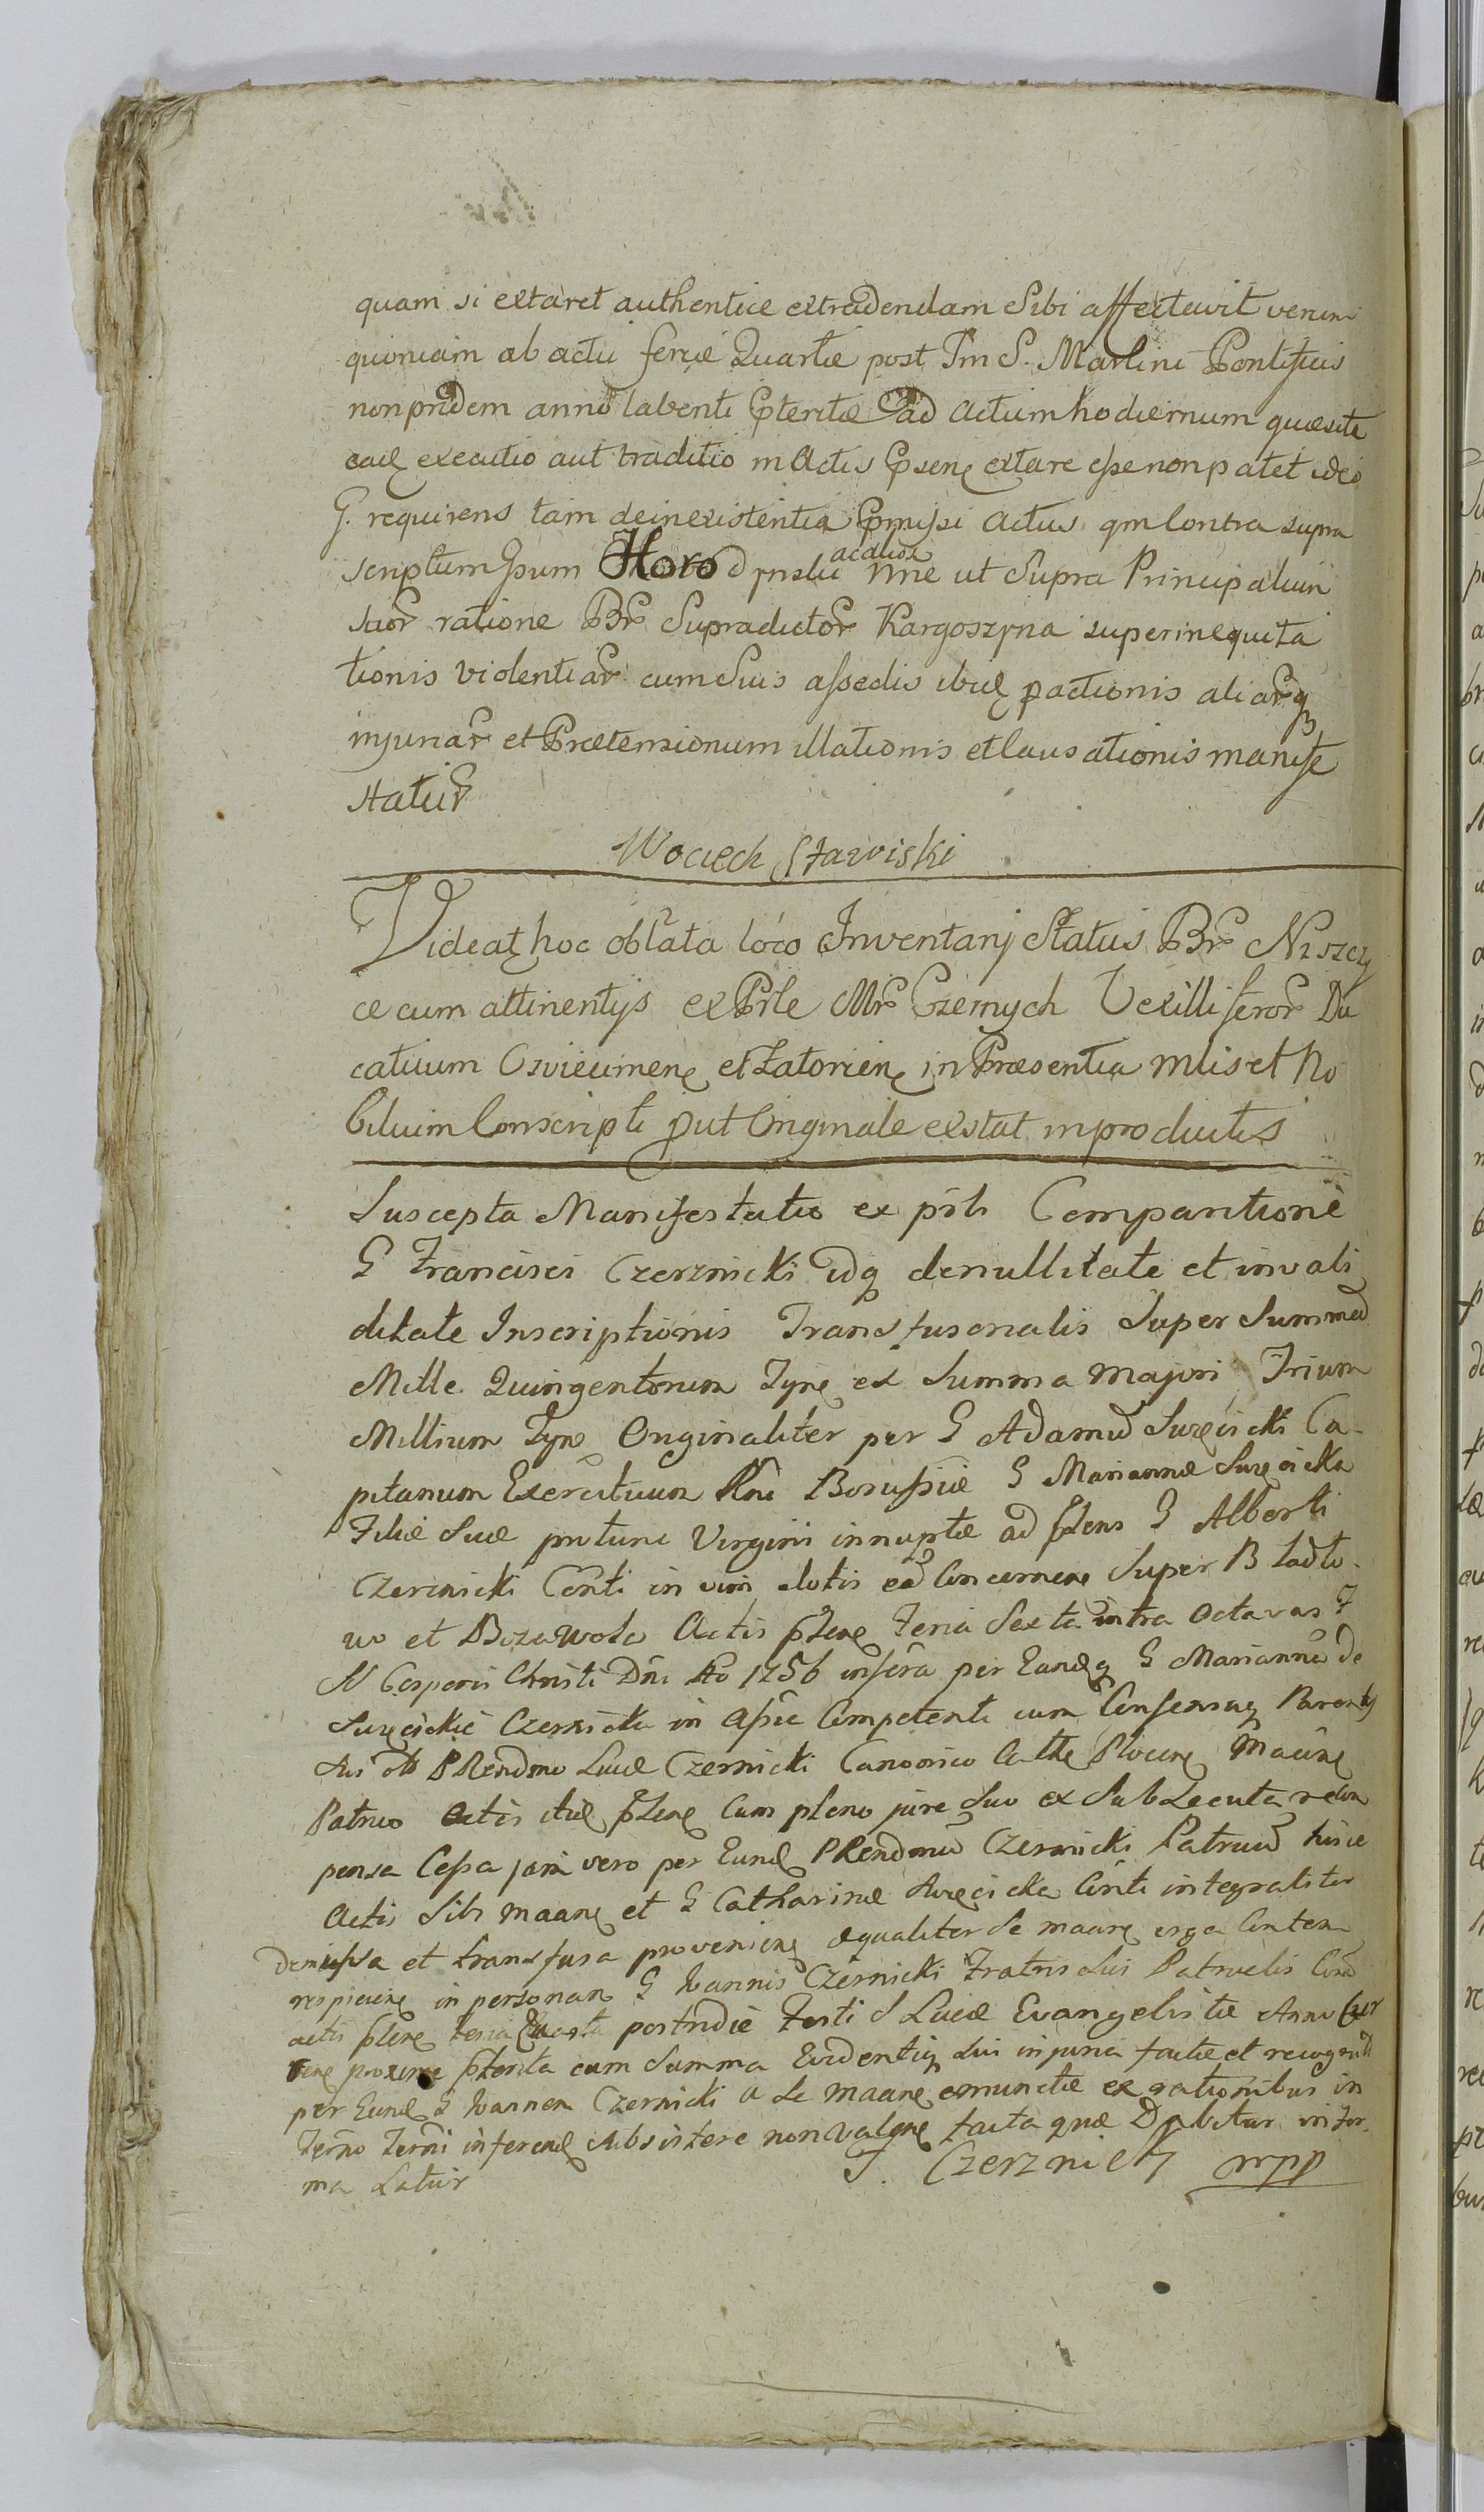 quam si extaret authentice extradendam Sibi affectavit verum
quoniam ab actu feriæ Quartæ post Fm S. Martini Pontificis
non pridem anno labenti Pteritæ ad Actum hodiernum quæsite
executio aut traditio in Actis extare esse non patet ideo
G. requirens tam de inexistentia Pmissi Actus qm Contra supra
scriptum Gsum Horodynski ac alior nne ut Supra Principalium
suor ratione Br Supradictor Kargoszyna superinequita
tionis violentiar cum Suis assedis ibid pactionis aliarq
injuriar et Prætensionum illationis et Causationis manife
statur
Wociech Stawiski
Videat hoc oblata loco Inventarj Status Br Niszczy
ce cum attinentijs ex Prte Mr Czernych Vexilliferor Du
catuum Oswiecimen et Zatorien in Præsentia Mlis et No
bilium Conscripti put Originale extat in productis
Suscepta Manifestatio ex psli Comparitione
G Francisci Czernicki idq de nullitate et invali
ditate Inscriptionis Transfusionalis Super Summa
Mille Quingentorum Tyn ex Summa majori Trium
Millium Tyn Originaliter per G Adamu Suręcicki Ca-
pitanum Exercituum Rni Borussiæ G Mariannæ Suręcicka
Filiæ Suæ pro tunc Virgini innuptæ ad Pens G Alberti
Czernicki Conti in vim dotis Concernen Super B
et Actis Feria Sexta intra Octavas F
S Corporis Christi Dni Ao 1756 per Eandq G Marianna de
Suręcickie Czernicka in Assia Competenti cum Consensuq
PRendmo Lucæ Czernicki Canonico Cathe Plocen
Patruo Actis Cum pleno jure Suo ex Subsecuta recom
pensa Cessa jam vero per Eund PRendmu Czernicki Patruu hisce
Actis Sibi maan et G Catharinæ Suręcicka Conti integraliter
demissa et transfusa provenien æqualiter Se maan erga
respicien in personam G Joannis Czernicki Fratris Sui Patruelis
actis Feria Quarta postridie Festi S Lucæ Evangelistæ Anno Cur
ren proxime Pterita cum Summa Evidentiq Sui injuria factæ et recognit
per Eund G Joannem Czernicki a Se maan emunctæ ex rationibus in
Termo Terni inferend Subsistere non valen facta quæ Dabitur in for
ma Latur
F. Czerznicki mpp